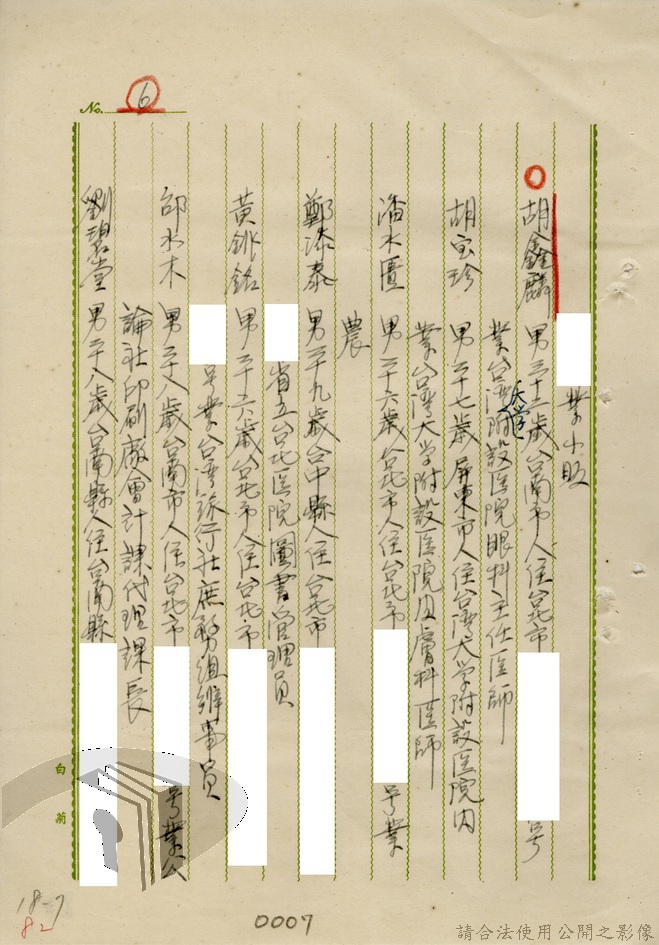 No. 6
業小販
胡鑫麟 男三十三歲台南市人住台北市 号
業台湾大学附設医院眼科主任医師
胡宝珍 男三十七歲屏東市人住台湾大学附設医院内
業台湾大学附設医院皮膚科医師
潘木匱 男二十六歲台北市人住台北市 号業
農
鄭添泰 男二十九歲台中縣人住台北市
省立台北医院圖書管理員
黃銚銘 男二十六歲台北市人住台北市
号業台湾銀行庶務組辦事員
邵水木 男二十八歲台南市人住台北市 号業公
論社印刷廠會計課代理課長
劉碧堂 男二十八歲台南縣人住台南縣
白 菊
18-7
82
0007
請合法使用公開之影像